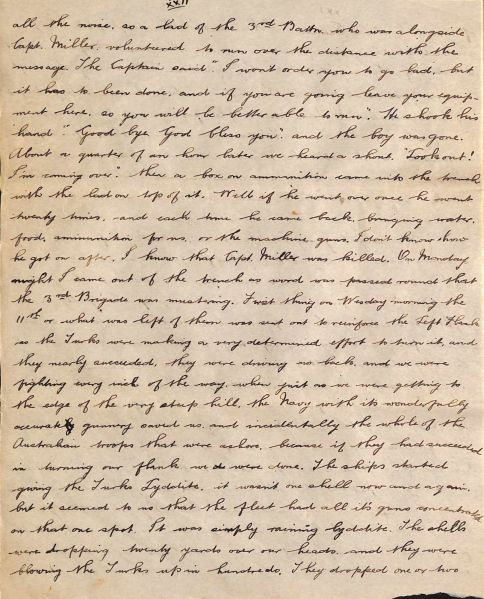 XXII
all the noise. so a lad of the 3rd Battn. who was alongside
Capt. Miller, volunteered to run over the distance with the
message. The Captain said "I wont order you to go lad, but
it has to been done, and if you are going leave your equip-
ment here, so you will be better able to run". He shook his
hand "Good bye God bless you". and the boy was gone.
About a quarter of an hour later we heard a shout, "Look out!
I'm coming over". then a box on ammunition came into the trench
with the lad on top of it. Well if he went over once he went
twenty times, and each time he came back, bringing water,
food, ammunition for us, or the machine guns. I don't know how
he got on after, I know that Capt. Miller was killed. On Monday
night I came out of the trench as word was passed round that
the 3rd Brigade was mustering. First thing on Wesday morning the
11th or what was left of them was sent out to reinforce the Left Flank
as the Turks were making a very determined effort to turn it, and
they nearly succeeded, they were driving us back, and we were
fighting every inch of the way, when just as we were getting to
the edge of the very steep hill, the Navy with its wonderfully
accurate gunnery saved us. and incidentally the whole of the
Australian troops that were ashore, because if they had succeeded
in turning our flank we were done. The ships started
giving the Turks Lyddite, it wasn't one shell now and again,
but it seemed to us that the fleet had all it's guns concentrated
on that one spot. It was simply raining Lyddite. The shells
were dropping twenty yards over our heads, and they were
blowing the Turks up in hundreds. They dropped one or two